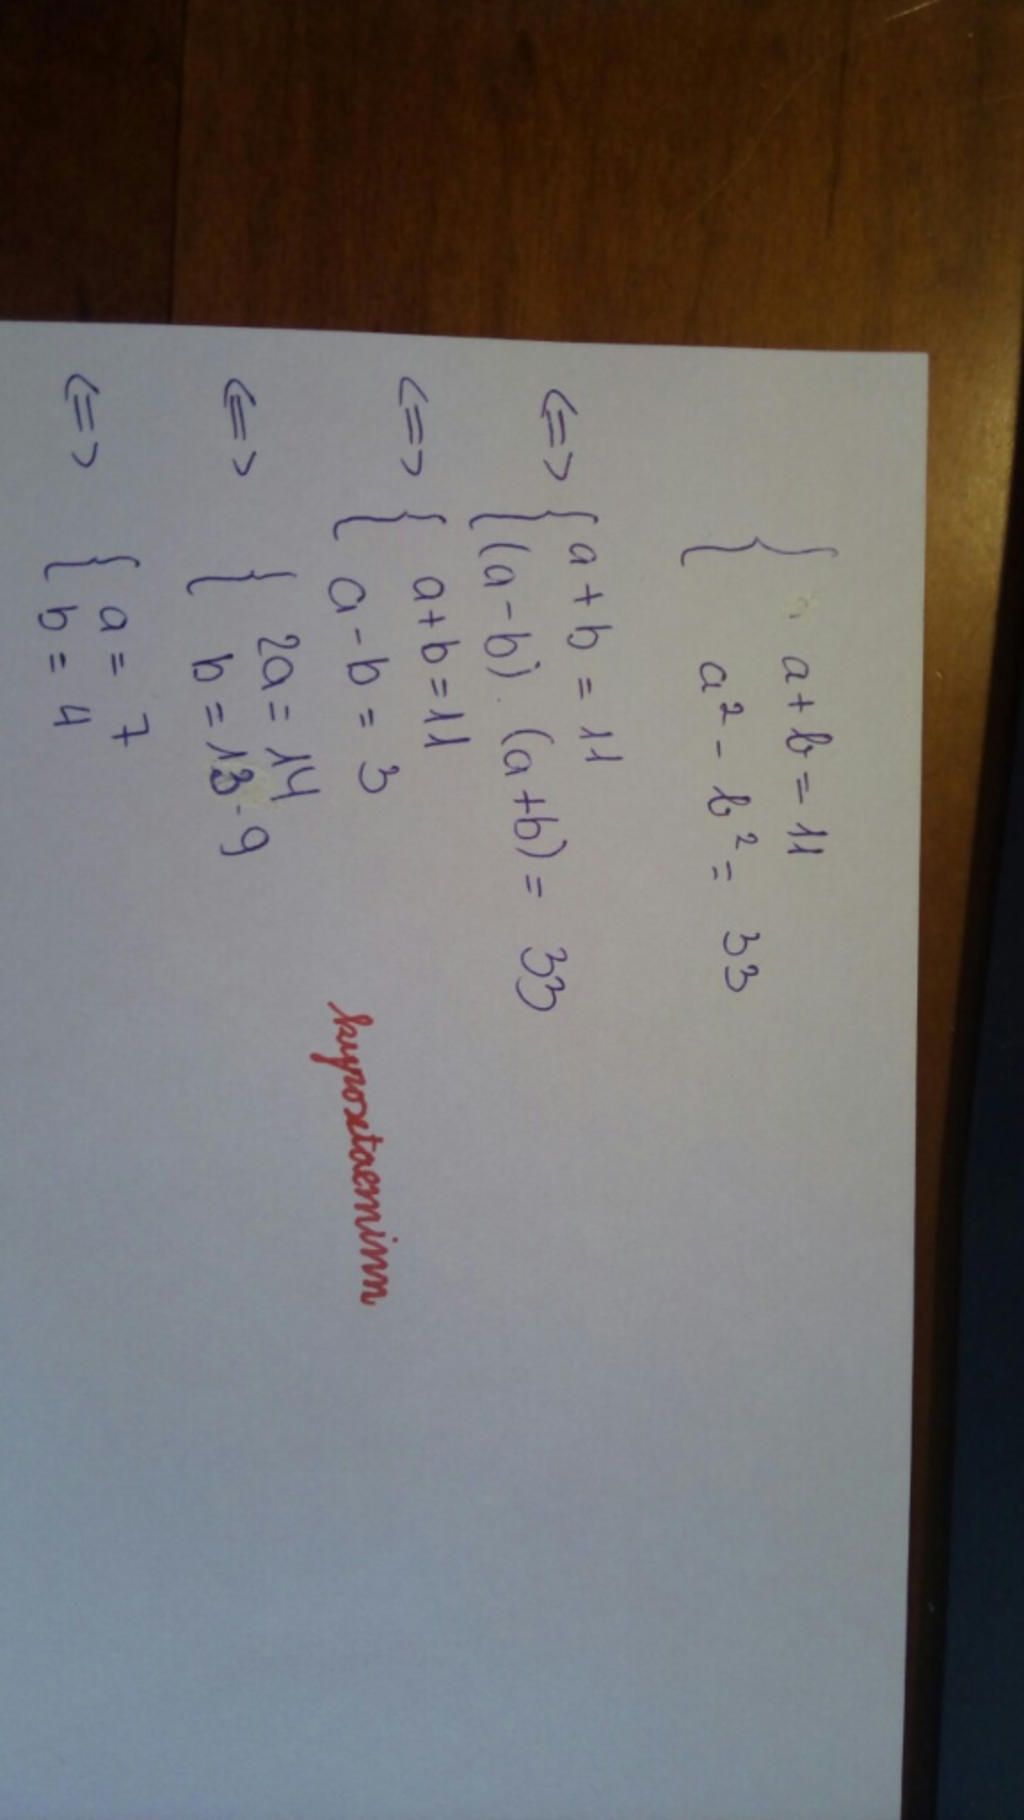 { a + b = 11
a² - b² = 33
<=> { a + b = 11
(a - b) . (a + b) = 33
<=> { a + b = 11
a - b = 3
<=> { 2a = 14
b = 13 - 9
<=> { a = 7
b = 4
kyroxtaeminn